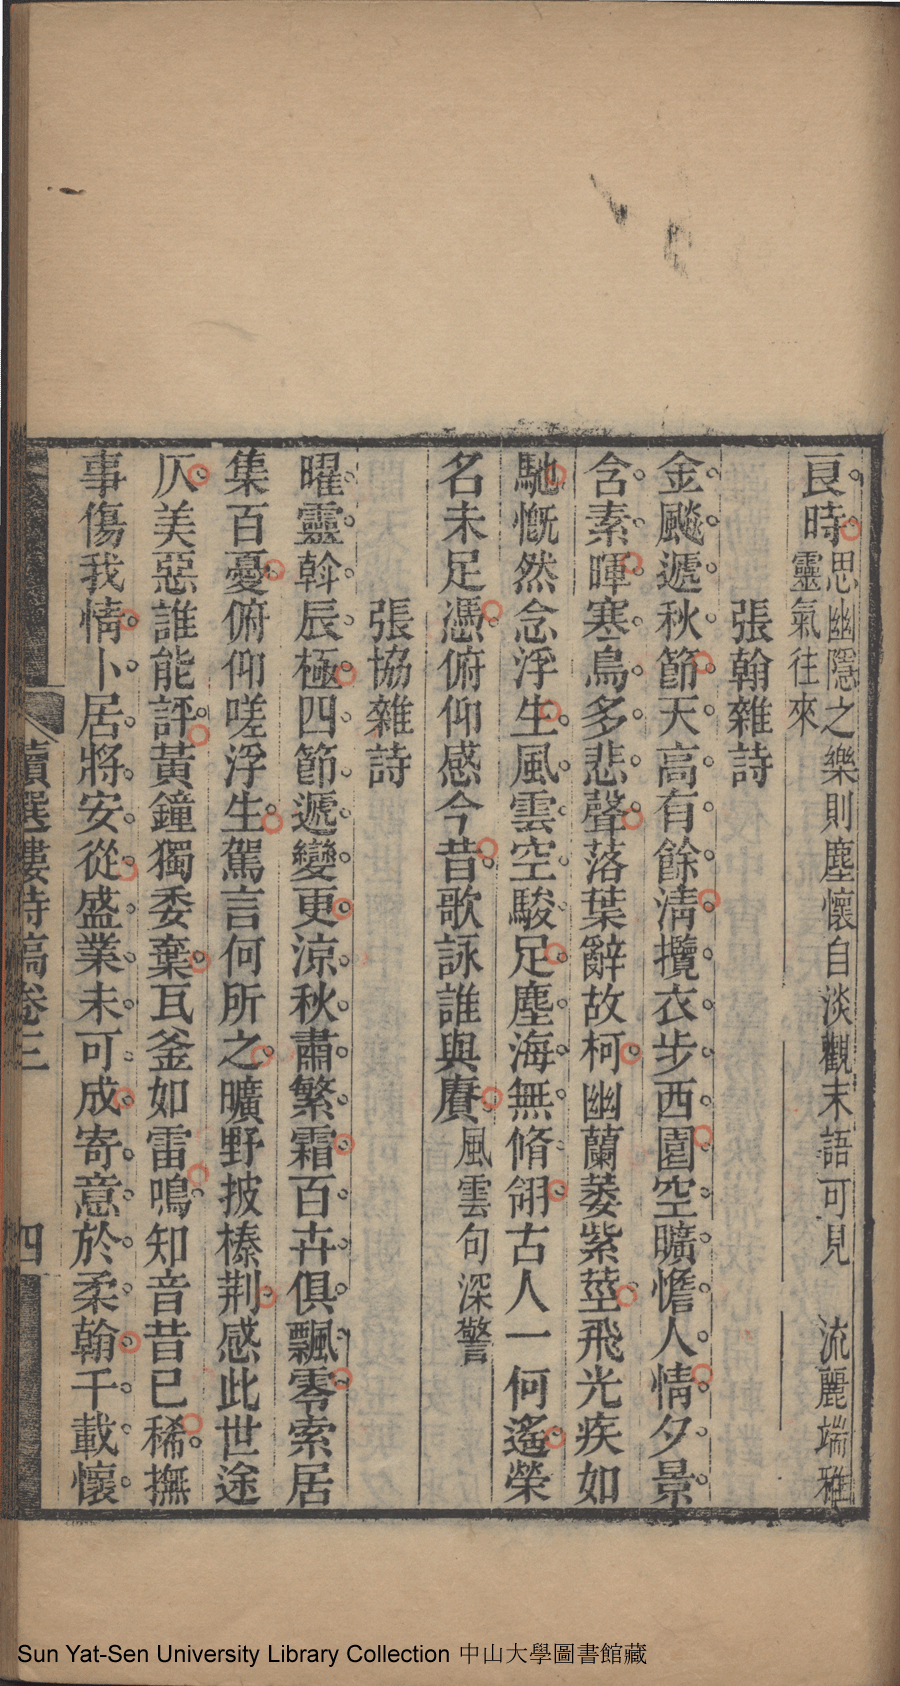 良時思幽隱之樂則塵懷自淡觀末語可見 流麗端雅
靈氣往來
張翰雜詩
金飈遞秋節天高有餘淸攬衣步西園空曠憺人情夕景
含素暉寒鳥多悲聲落葉辭故柯幽蘭萎紫莖飛光疾如
馳慨然念浮生風雲空駿足塵海無脩翎古人一何遙榮
名未足憑俯仰感今昔歌詠誰與賡風雲句深警
張協雜詩
曜靈斡辰極四節遞變更涼秋肅繁霜百卉俱飄零索居
集百憂俯仰嗟浮生駕言何所之曠野披榛荆感此世途
仄美惡誰能評黃鐘獨委棄瓦釜如雷鳴知音昔已稀撫
事傷我情卜居將安從盛業未可成寄意於柔翰千載懷
續選樓詩稿卷三
四
Sun Yat-Sen University Library Collection 中山大學圖書館藏